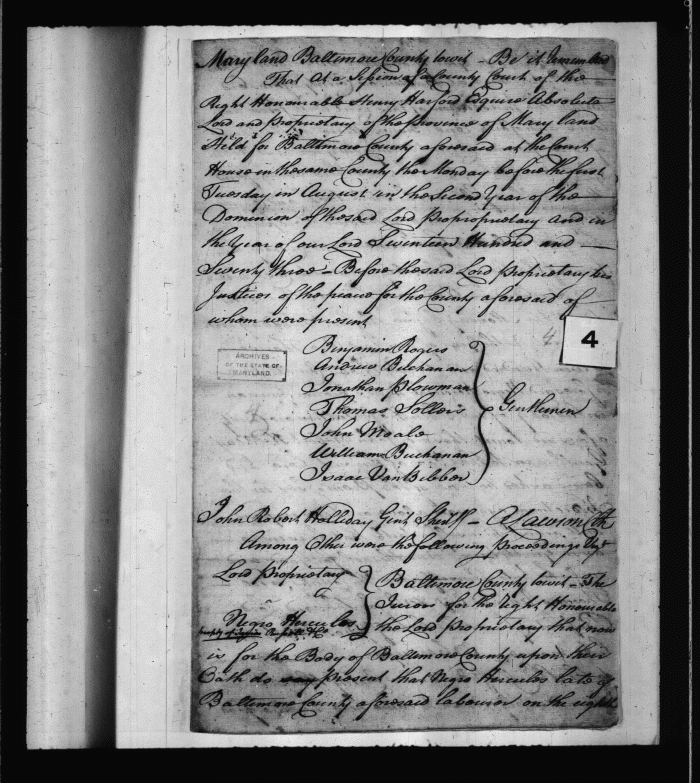 Maryland Baltimore County towit - Be it Remembred
That At a Session of a County Court of the
Right Honourable Henry Harford Esquire Absolute
Lord and Proprietary of the Province of Maryland
Held for Baltimore County aforesaid at the Court
House in the same County the Monday before the first
Tuesday in August in the Second Year of the
Dominion of the said Lord Propropriety And in
the Year of our Lord Seventeen Hundred and
Seventy three - Before the said Lord Proprietary his
Justices of the peace for the County aforesaid of
whom were present
4
4
ARCHIVES
OF THE STATE OF
MARYLAND.
Benjamin Rogers
Andrew Buchanan
Jonathan Plowman
Thomas Sollers
John Moale
William Buchanan
Isaac VanBibber
Gentlemen
John Robert Holliday Gent Sheriff - A Lawson Clk
Among Other were the following Proceedings Vizt
Lord Proprietary
a
Negro Hercules
Baltimore County towit - The
Jurors for the Right Honourable
the Lord Proprietary that now
is for the Body of Baltimore County upon their
Oath do present that Negro Hercules late of
Baltimore County aforesaid labourer on the eighth